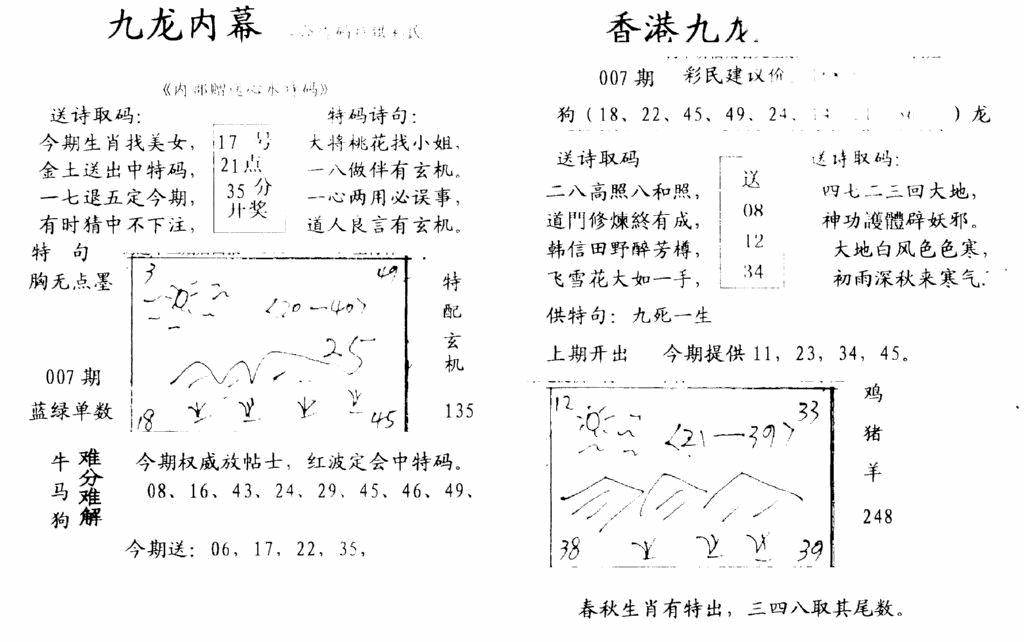 九龙内幕
《内部赠送心水特码》
送诗取码:
今期生肖找美女,
金土送出中特码,
一七退五定今期,
有时猜中不下注,
17 号
21点
35 分
开奖
特码诗句:
大将桃花找小姐,
一八做伴有玄机。
一心两用必误事,
道人良言有玄机。
特 句
胸无点墨
007 期
蓝绿单数
3
49
<20—40>
25
18
45
特
配
玄
机
135
牛
马
狗
难
分
难
解
今期权威放帖士, 红波定会中特码。
08、16、43、24、29、45、46、49、
今期送: 06, 17, 22, 35,
香港九龙
007 期 彩民建议价
狗 ( 18、22、45、49、24、 ) 龙
送诗取码
二八高照八和照,
道門修煉終有成,
韩信田野醉芳樽,
飞雪花大如一手,
送
08
12
34
送诗取码:
四七二三回大地,
神功護體辟妖邪。
大地白风色色寒,
初雨深秋来寒气.
供特句: 九死一生
上期开出 今期提供 11, 23, 34, 45。
12
33
<21—39>
38
39
鸡
猪
羊
248
春秋生肖有特出, 三四八取其尾数。